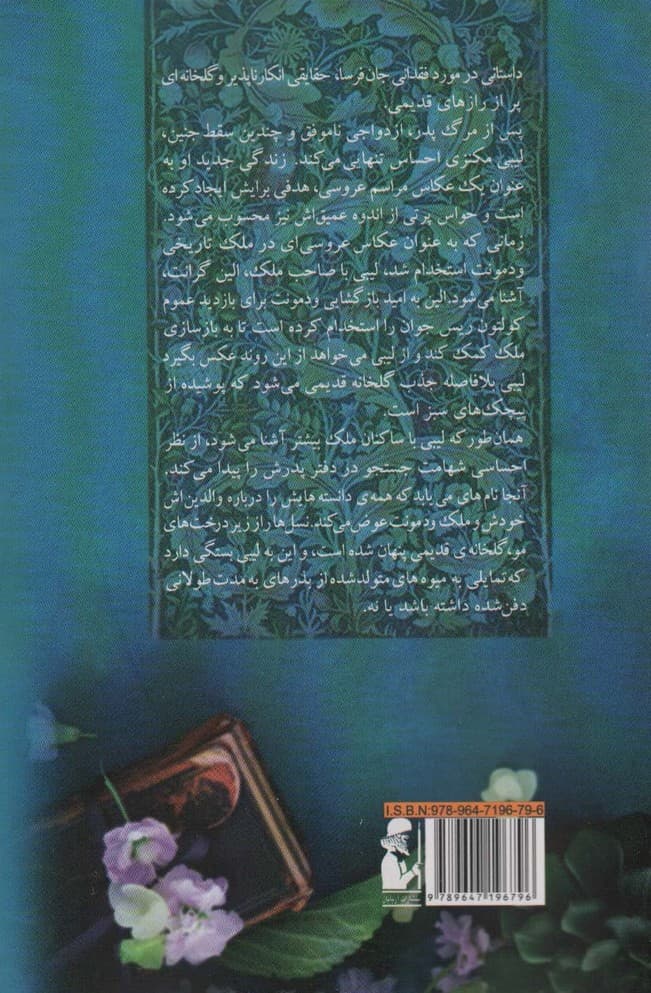 داستانی در مورد فقدانی جان‌فرسا، حقایقی انکارناپذیر و گلخانه‌ای
پر از رازهای قدیمی.
پس از مرگ پدر، ازدواجی ناموفق و چندین سقط جنین،
لیبی مکنزی احساس تنهایی می‌کند. زندگی جدید او به
عنوان یک عکاس مراسم عروسی، هدفی برایش ایجاد کرده
است و حواس پرتی از اندوه عمیق‌اش نیز محسوب می‌شود.
زمانی که به عنوان عکاس عروسی‌ای در ملک تاریخی
ودمونت استخدام شد، لیبی با صاحب ملک، الین گرانت،
آشنا می‌شود. الین به امید بازگشایی ودمونت برای بازدید عموم
کولتون ریس جوان را استخدام کرده است تا به بازسازی
ملک کمک کند و از لیبی می‌خواهد از این روند عکس بگیرد
لیبی بلافاصله جذب گلخانه قدیمی می‌شود که پوشیده از
پیچک‌های سبز است.
همان‌طور که لیبی با ساکنان ملک بیشتر آشنا می‌شود، از نظر
احساسی شهامت جستجو در دفتر پدرش را پیدا می‌کند.
آنجا نام‌های می‌یابد که همه‌ی دانسته هایش را درباره والدین‌اش
خودش و ملک ودمونت عوض می‌کند. نسل‌ها راز زیر درخت‌های
مو، گلخانه‌ی قدیمی پنهان شده است، و این به لیبی بستگی دارد
که تمایلی به میوه های متولد شده از بذرهای به مدت طولانی
دفن‌شده داشته باشد یا نه.
I.S.B.N:978-964-7196-79-6
9 789647 196796